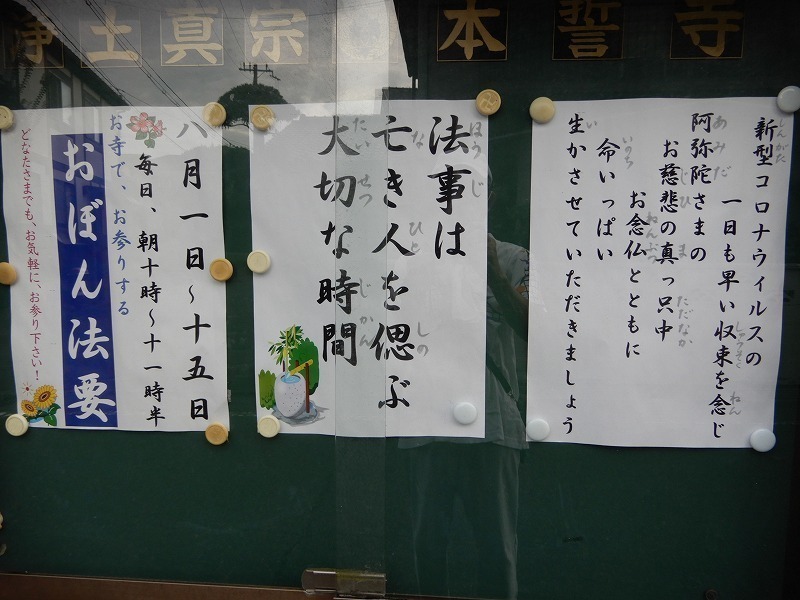 浄土真宗 本誓寺
新型コロナウィルスの
一日も早い収束を念じ
阿弥陀さまの
お慈悲の真っ只中
お念仏とともに
命いっぱい
生かさせていただきましょう
法事は
亡き人を偲ぶ
大切な時間
八月一日～十五日
毎日、朝十時～十一時半
お寺で、お参りする
おぼん法要
どなたさまでも、お気軽に、お参り下さい！